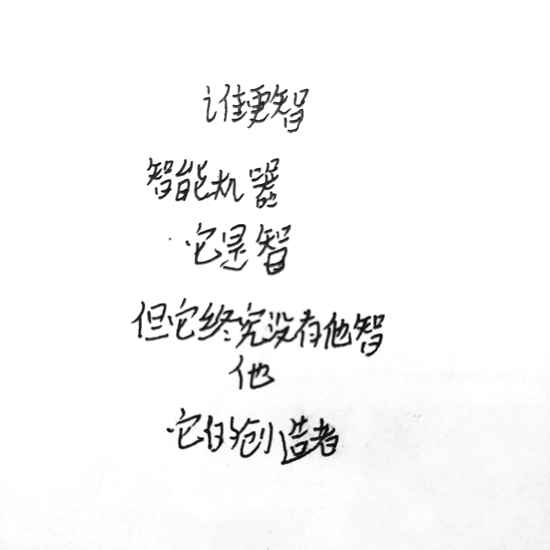 谁更智
智能机器
它是智
但它终究没有他智
他
它的创造者